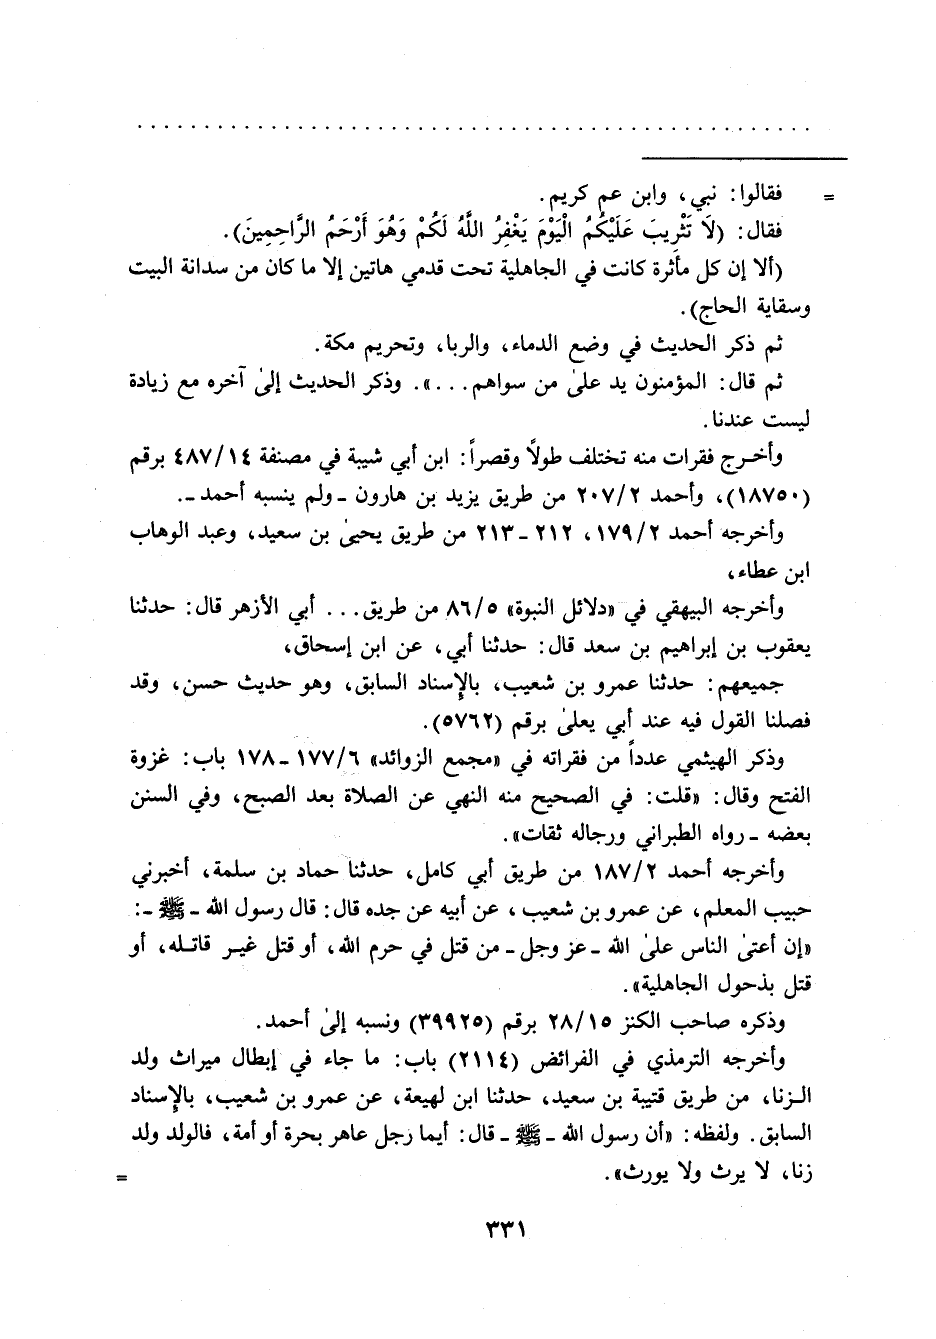 = فقالوا: نبي، وابن عم كريم.
فقال: (لَا تَثْرِيبَ عَلَيْكُمُ الْيَوْمَ يَغْفِرُ اللَّهُ لَكُمْ وَهُوَ أَرْحَمُ الرَّاحِمِينَ).
(ألا إن كل مأثرة كانت في الجاهلية تحت قدمي هاتين إلا ما كان من سدانة البيت
وسقاية الحاج).
ثم ذكر الحديث في وضع الدماء، والربا، وتحريم مكة.
ثم قال: المؤمنون يد علىٰ من سواهم...». وذكر الحديث إلىٰ آخره مع زيادة
ليست عندنا.
وأخرج فقرات منه تختلف طولاً وقصراً: ابن أبي شيبة في مصنفة ١٤/ ٤٨٧ برقم
(١٨٧٥٠)، وأحمد ٢/ ٢٠٧ من طريق يزيد بن هارون ـ ولم ينسبه أحمد ـ.
وأخرجه أحمد ٢/ ١٧٩، ٢١٢ ـ ٢١٣ من طريق يحيىٰ بن سعيد، وعبد الوهاب
ابن عطاء،
وأخرجه البيهقي في «دلائل النبوة» ٥/ ٨٦ من طريق... أبي الأزهر قال: حدثنا
يعقوب بن إبراهيم بن سعد قال: حدثنا أبي، عن ابن إسحاق،
جميعهم: حدثنا عمرو بن شعيب، بالإسناد السابق، وهو حديث حسن، وقد
فصلنا القول فيه عند أبي يعلىٰ برقم (٥٧٦٢).
وذكر الهيثمي عدداً من فقراته في «مجمع الزوائد» ٦/ ١٧٧ ـ ١٧٨ باب: غزوة
الفتح وقال: «قلت: في الصحيح منه النهي عن الصلاة بعد الصبح، وفي السنن
بعضه ـ رواه الطبراني ورجاله ثقات».
وأخرجه أحمد ٢/ ١٨٧ من طريق أبي كامل، حدثنا حماد بن سلمة، أخبرني
حبيب المعلم، عن عمرو بن شعيب، عن أبيه عن جده قال: قال رسول الله ـ ﷺ ـ:
«إن أعتىٰ الناس علىٰ الله ـ عز وجل ـ من قتل في حرم الله، أو قتل غير قاتله، أو
قتل بذحول الجاهلية».
وذكره صاحب الكنز ١٥/ ٢٨ برقم (٣٩٩٢٥) ونسبه إلىٰ أحمد.
وأخرجه الترمذي في الفرائض (٢١١٤) باب: ما جاء في إبطال ميراث ولد
الزنا، من طريق قتيبة بن سعيد، حدثنا ابن لهيعة، عن عمرو بن شعيب، بالإسناد
السابق. ولفظه: «أن رسول الله ـ ﷺ ـ قال: أيما رجل عاهر بحرة أو أمة، فالولد ولد
زنا، لا يرث ولا يورث». =
٣٣١